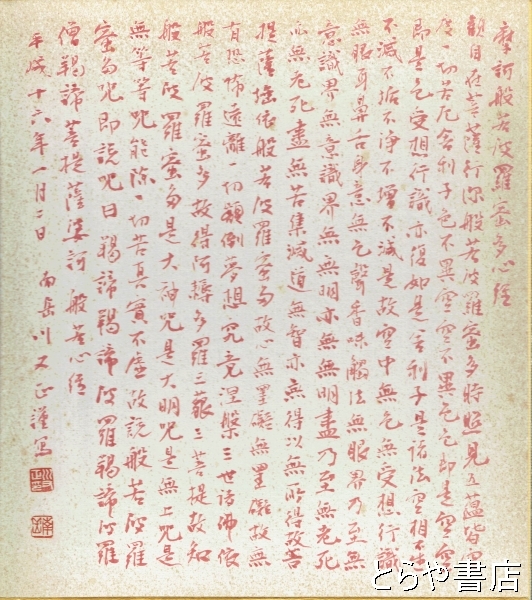 摩訶般若波羅蜜多心経
観自在菩薩行深般若波羅蜜多時照見五蘊皆空
度一切苦厄舎利子色不異空空不異色色即是空空
即是色受想行識亦復如是舎利子是諸法空相不生
不滅不垢不浄不増不減是故空中無色無受想行識
無眼耳鼻舌身意無色聲香味觸法無眼界乃至無
意識界無意識界無無明亦無無明盡乃至無老死
亦無老死盡無苦集滅道無智亦無得以無所得故菩
提薩埵依般若波羅蜜多故心無罣礙無罣礙故無
有恐怖遠離一切顛倒夢想究竟涅槃三世諸佛依
般若波羅蜜多故得阿耨多羅三藐三菩提故知
般若波羅蜜多是大神呪是大明呪是無上呪是
無等等呪能除一切苦真實不虚故説般若波羅
蜜多呪即説呪曰 羯諦羯諦波羅羯諦波羅
僧羯諦菩提薩婆訶 般若心経
平成十六年一月二日 南岳川又正謹写
とらや書店